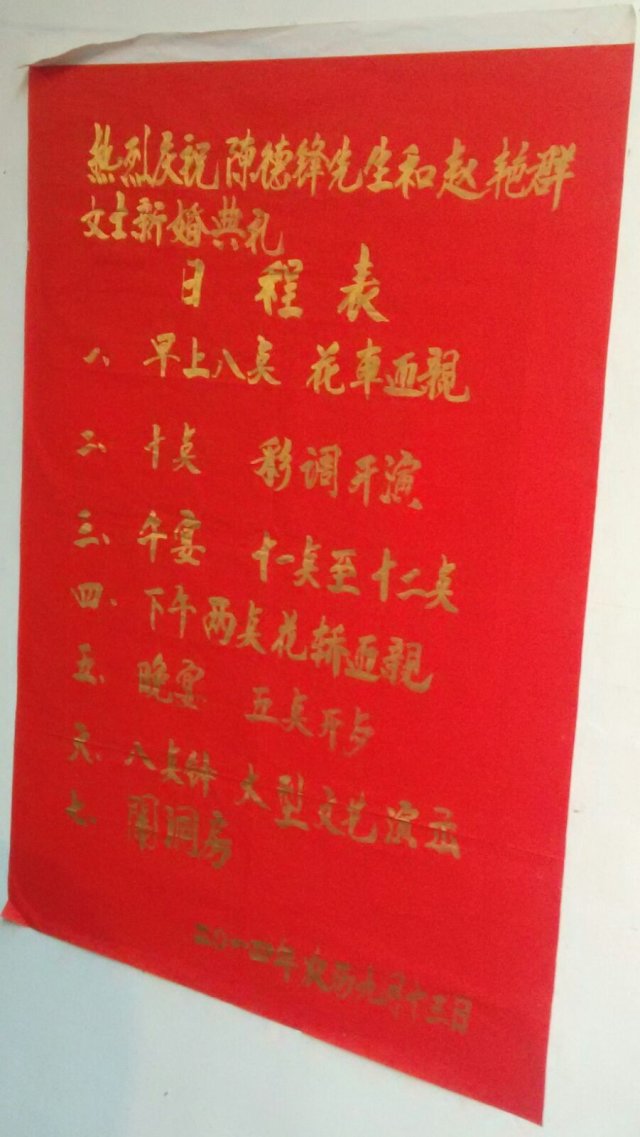 热烈庆祝陳德鋒先生和赵艳群
女士新婚典礼
日程表
一、早上八点 花車迎親
二、十点 彩调开演
三、午宴 十一点至十二点
四、下午两点花轿迎親
五、晚宴 五点开始
六、八点钟 大型文艺演示
七、闹洞房
二〇一四年农历九月十三日